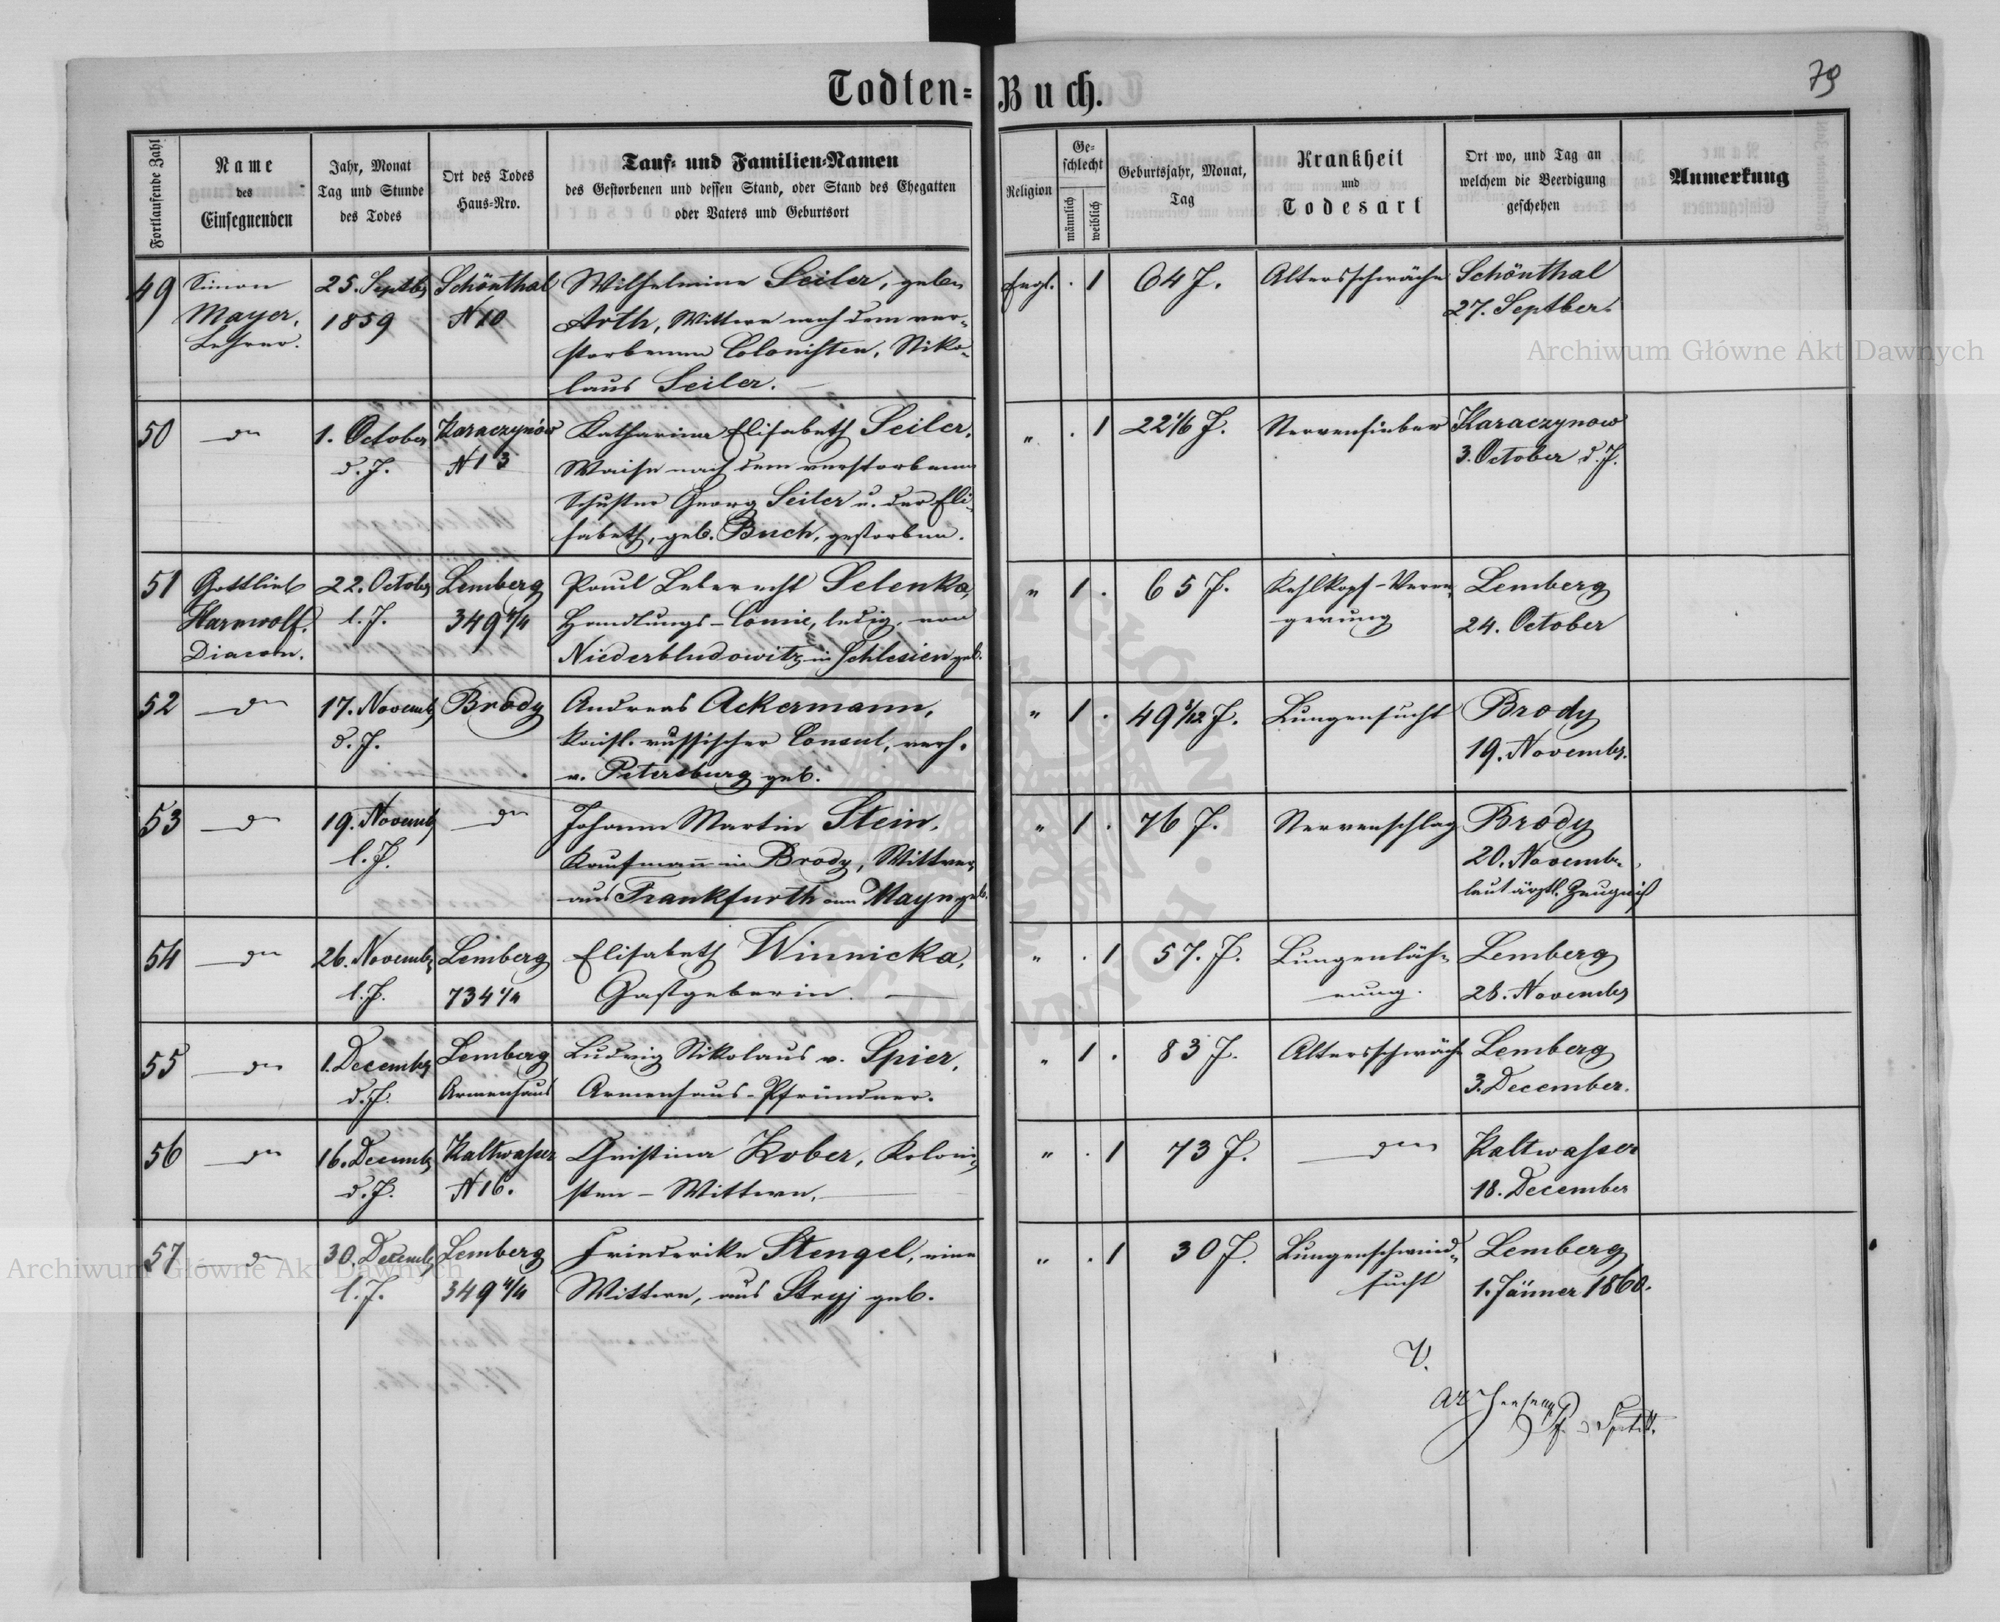 Todten-Buch.
79
Fortlaufende Zahl
Name
des
Einsegnenden
Jahr, Monat
Tag und Stunde
des Todes
Ort des Todes
Haus-Nro.
Tauf- und Familien-Namen
des Gestorbenen und dessen Stand, oder Stand des Ehegatten
oder Vaters und Geburtsort
Religion
Ge-
schlecht
männlich
weiblich
Geburtsjahr, Monat,
Tag
Krankheit
und
Todesart
Ort wo, und Tag an
welchem die Beerdigung
geschehen
Anmerkung
49
Simon
Mayer,
Lehrer.
25. Septbr
1859
Schönthal
N 10
Wilhelmine Seiler, geben
Arth, Wittwe nach dem ver-
storbenen Colonisten, Niko-
laus Seiler.
Evgl.
. 1
64 J.
Altersschwäche
Schönthal
27. Septber.
50
do
1. October
d. J.
Karaczynów
N 13
Katharina Elisabeth Seiler,
Waise nach dem verstorbenen
Schuster Georg Seiler u. der Eli-
sabeth, geb. Buch, gestorben.
"
. 1
22 1/6 J.
Nervenfieber
Karaczynow
3. October d. J.
51
Gottlieb
Harnwolf.
Diacon.
22. October
l. J.
Lemberg
349 4/4
Paul Leberecht Selenka,
Handlungs-Comis, ledig, von
Niederbludowitz in Schlesien geb.
"
1 .
65 J.
Kehlkopf-Veren-
gerung
Lemberg
24. October
52
do
17. Novemb
d. J.
Brody
Andreas Ackermann,
kaisl. russischer Consul, verh.
v. Petersburg geb.
"
1 .
49 3/12 J.
Lungensucht
Brody
19. Novembr.
53
do
19. Novemb
l. J.
do
Johann Martin Stein,
Kaufmann in Brody, Wittwer,
aus Frankfurth am Mayn geb.
"
1 .
76 J.
Nervenschlag
Brody
20. Novemb.
laut ärztl. Zeugniß
54
do
26. Novembr
l. J.
Lemberg
734 4/4
Elisabeth Winnicka,
Gastgeberin.
"
. 1
57. J.
Lungenläh-
mung.
Lemberg
28. November
55
do
1. Decembr
d. J.
Lemberg
Armenhaus
Ludwig Nikolaus v. Spier,
Armenhaus-Pfründner.
"
1 .
83 J.
Altersschwäche
Lemberg
3. December.
56
do
16. Decemb
d. J.
Kaltwasser
N 16.
Christina Kober, Koloni-
sten-Wittwe.
"
. 1
73 J.
do
Kaltwasser
18. December
57
do
30. Decemb
l. J.
Lemberg
349 4/4
Friederike Stengel, eine
Wittwe, aus Stryj geb.
"
. 1
30 J.
Lungenschwind-
sucht
Lemberg
1. Jänner 1860.
V.
Archiwum Główne Akt Dawnych
Archiwum Główne Akt Dawnych